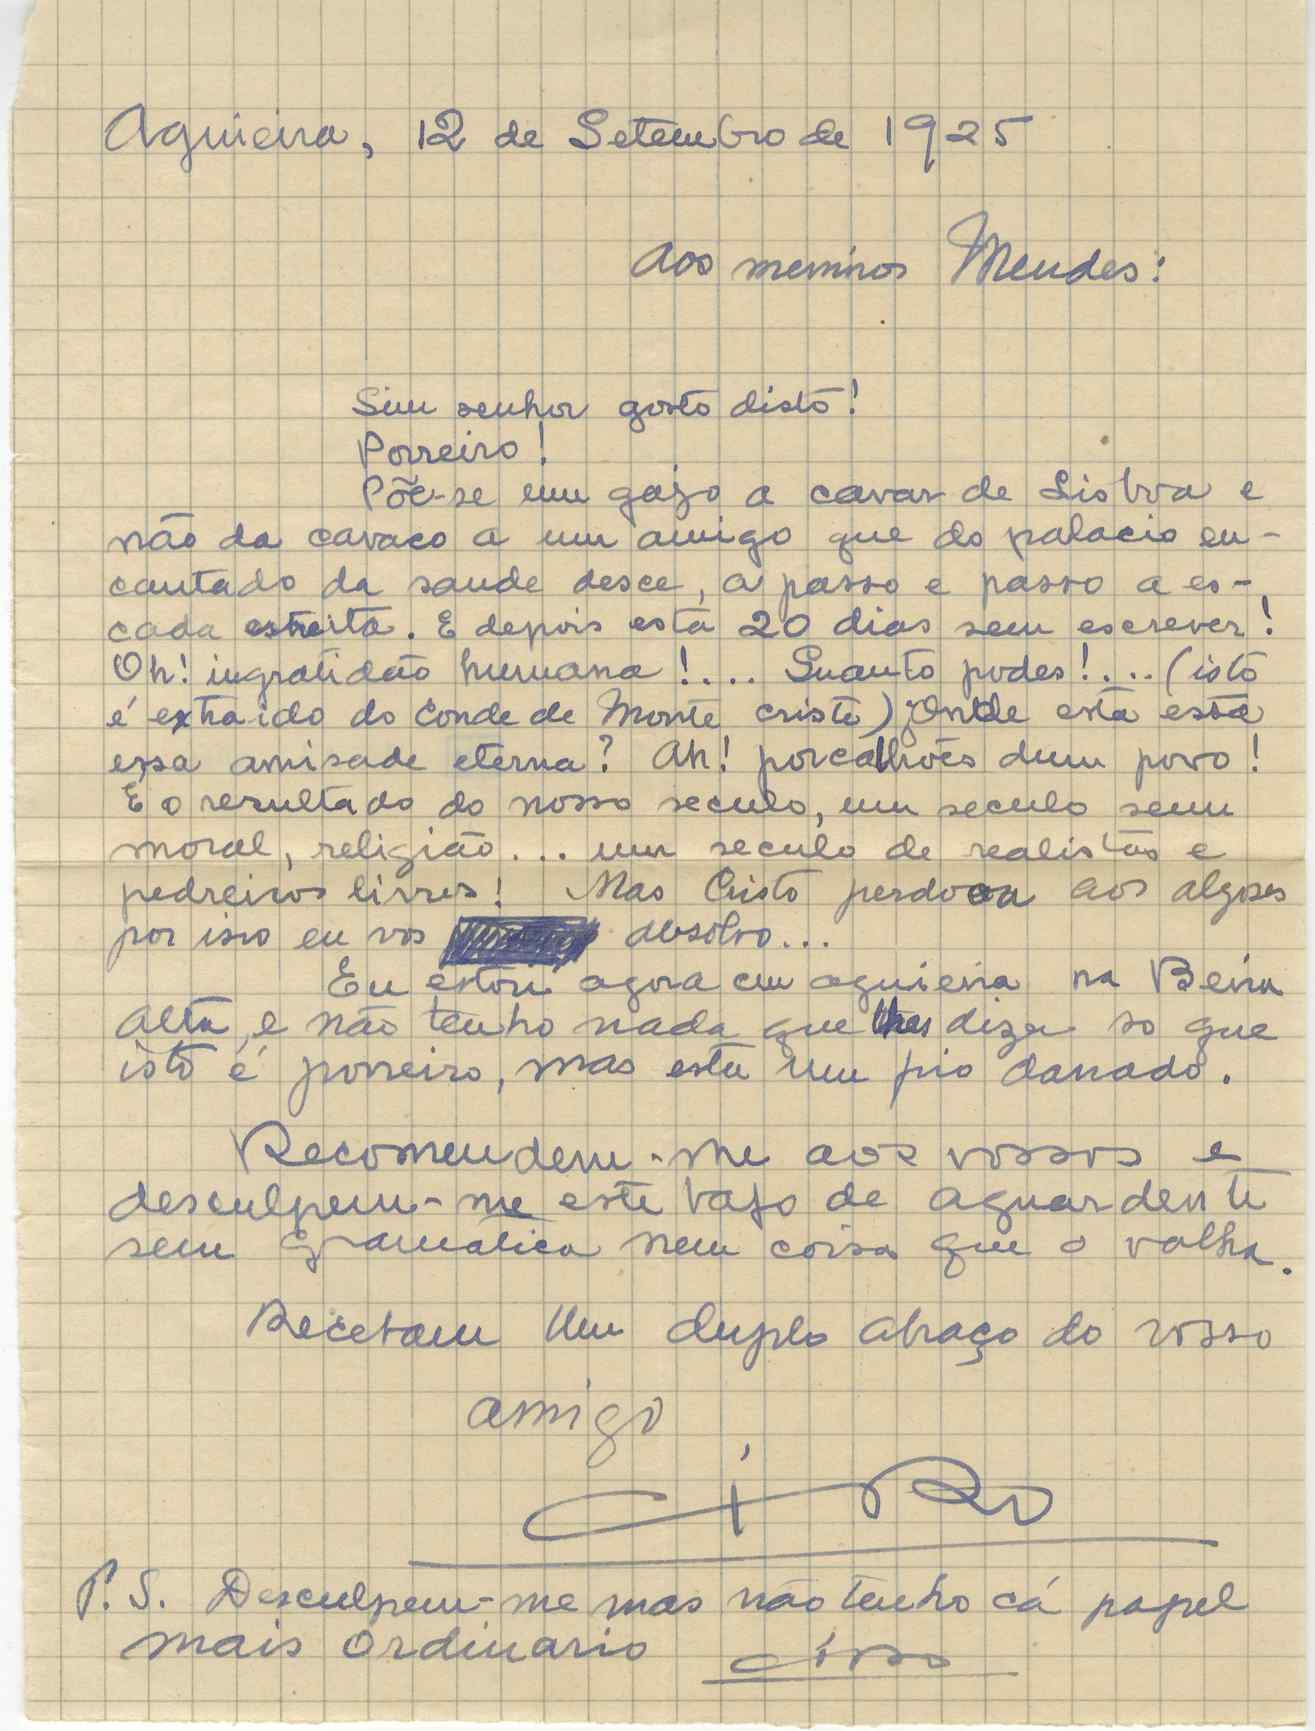 Aguieira, 12 de Setembro de 1925
Aos meninos Mendes:
Sim senhor gosto disto!
Porreiro!
Põe-se um gajo a cavar de Lisboa e
não da cavaco a um amigo que do palacio en-
cantado da saude desce, a passo e passo a es-
cada estreita. E depois esta 20 dias sem escrever!
Oh! ingratidão humana!.... Quanto podes!....(isto
é extraido do Conde de Monte cristo) Onde esta essa
essa amisade eterna? Ah! porcalhões dum povo!
É o resultado do nosso seculo, um seculo sem
moral, religião... um seculo de realistas e
pedreiros livres! Mas Cristo perdoou aos algoses
por isso eu vos absolvo...
Eu estou agora em aguieira na Beira
Alta, e não tenho nada que lhes dizer so que
isto é porreiro, mas esta um frio danado.
Recomendem-me aos vossos e
desculpem-me este bafo de aguardente
sem gramatica nem coisa que o valha.
Recebam um duplo abraço do vosso
amigo
Ciro
P.S. Desculpem-me mas não tenho cá papel
mais ordinario Ciro